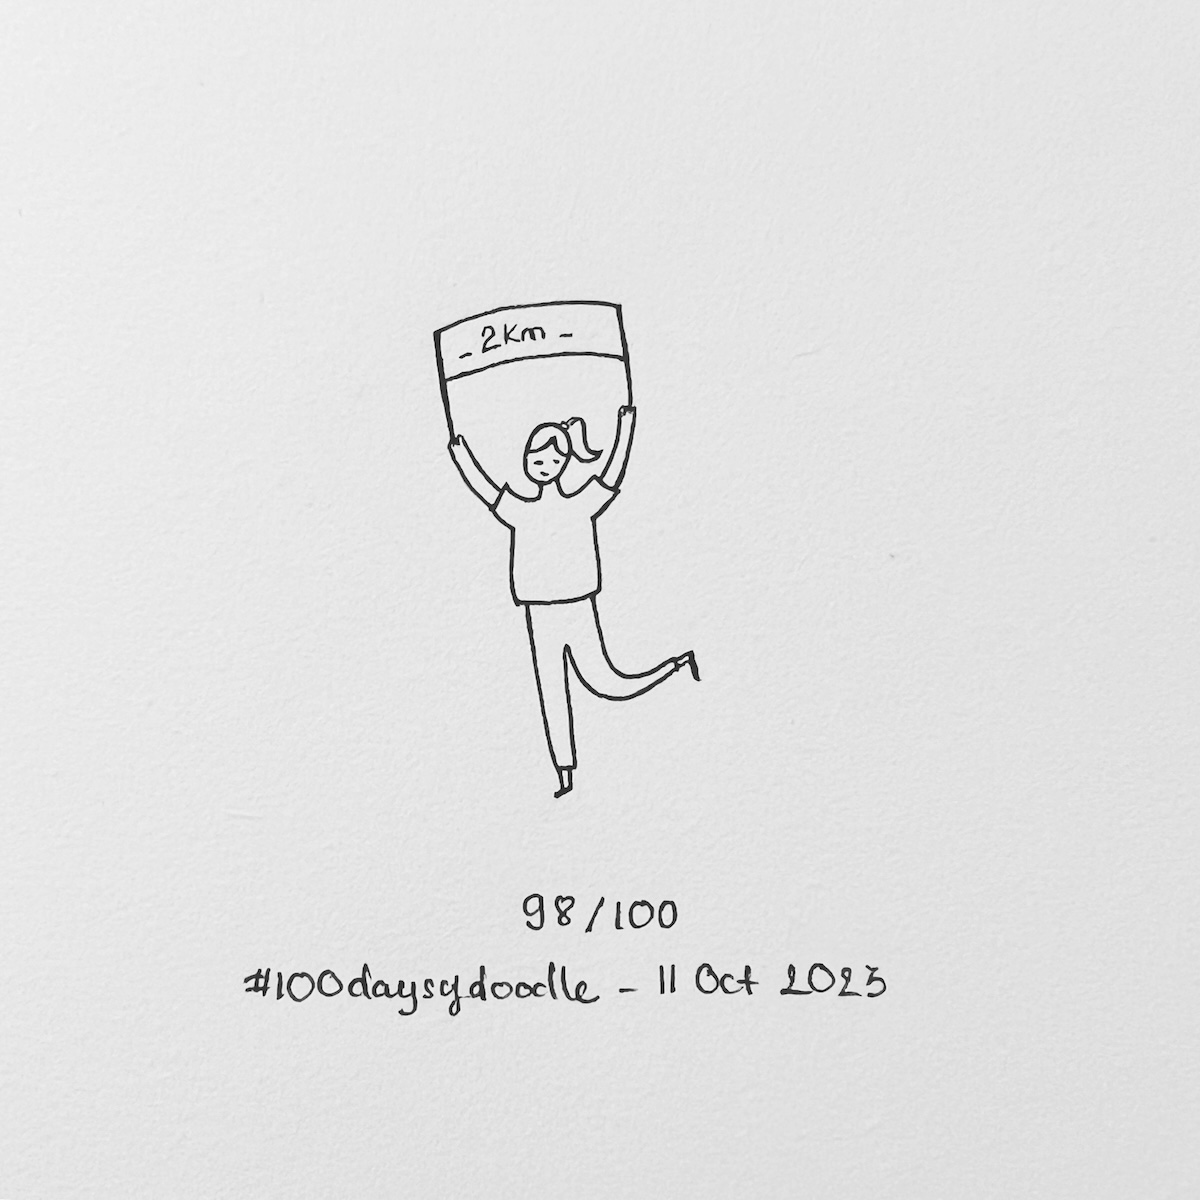 - 2km -
98/100
#100daysofdoodle - 11 Oct 2023